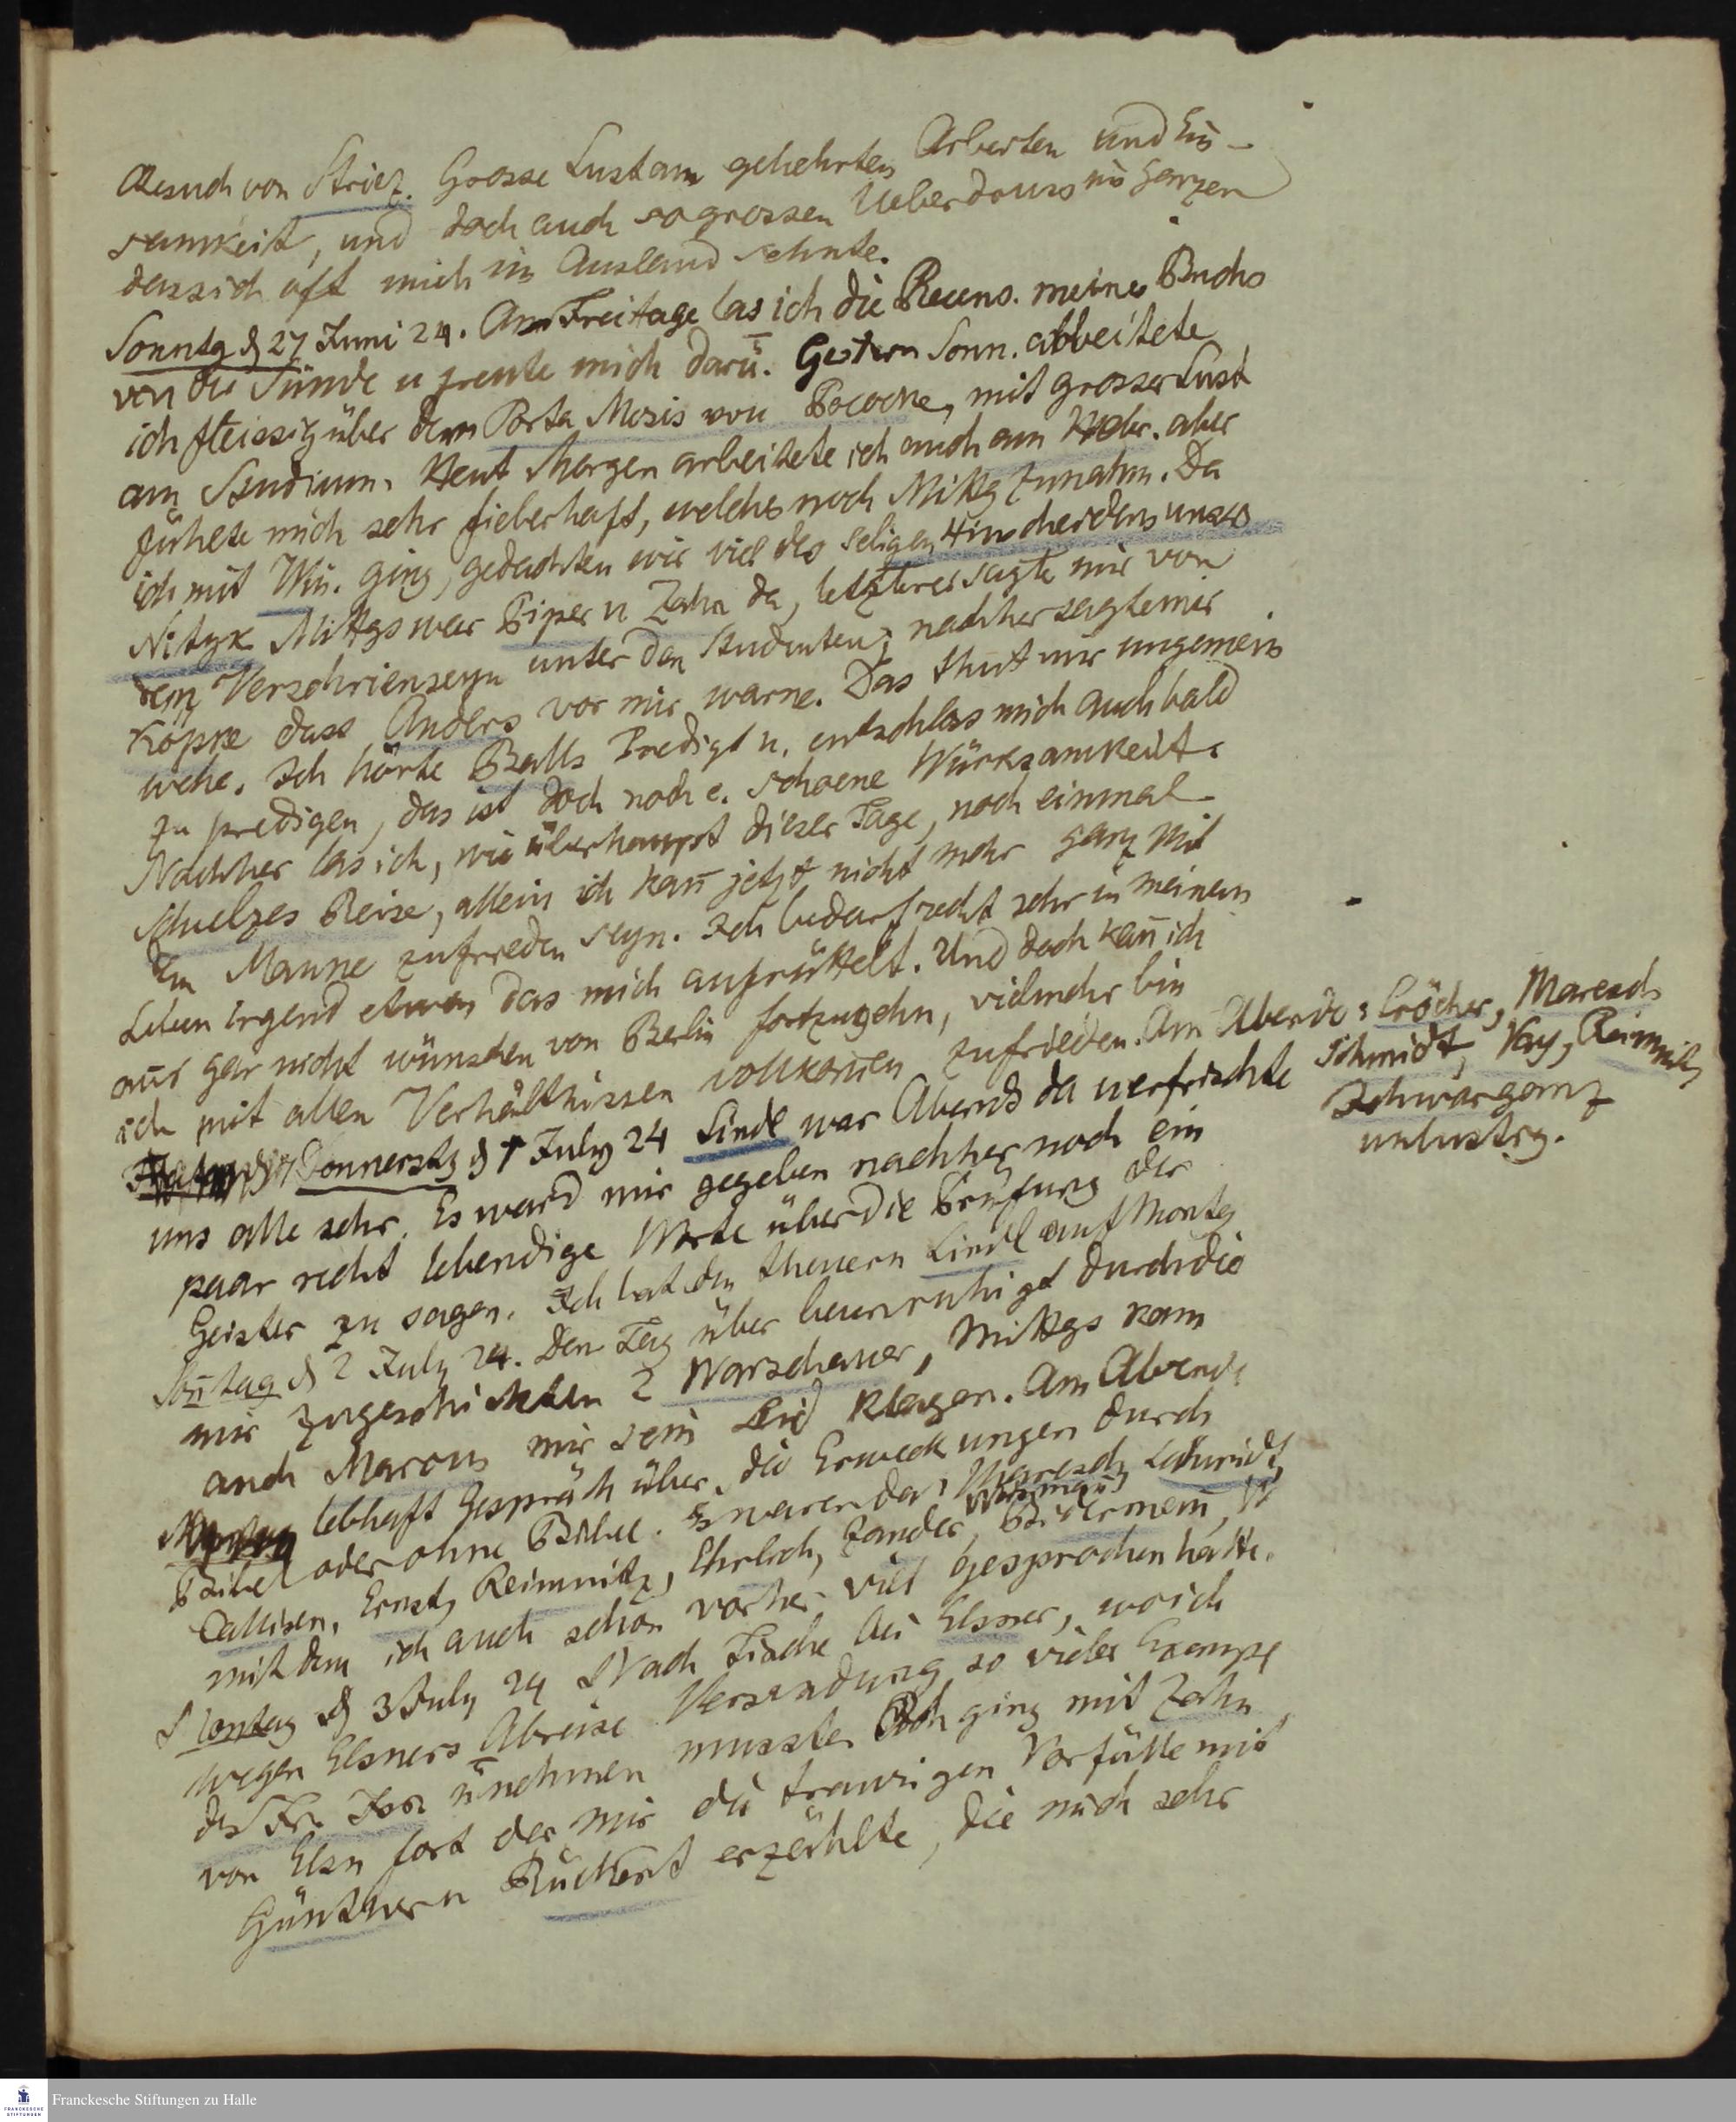 Besuch von Striez. Grosse Lust am gelehrten Arbeiten und Ein-
samkeit, und doch auch so grossen Ueberdruss im Ganzen
dass ich oft mich ins Ausland sehnte.
Sonntg d 27 Juni 24. Am Freitage las ich die Recens. meines Buchs
von die Sünde u freute mich darü. Gestern Sonn. arbeitete
ich fleissig über dem Porta Mosis von Pococke, mit grosser Lust
am Studium. Heut Morgen arbeitete ich auch am Hebr. aber
fühlte mich sehr fieberhaft, welches nach Mittg zunahm. Da
ich mit Win. ging, gedachten wir viel des seligen Hinscheidens unsers
Nitzk Mittgs war Piper u Zahn da, letzterer sagte mir von
dem Verschrienseyn unter den Studenten; nachher sagte mir
Köppe dass Anders vor mir warne. Das thut mir ungemein
wehe. Ich hörte Balls Predigt u. entschloss mich auch bald
zu predigen, das ist doch noch e. schoene Würksamkeit.
Nachher las ich, wie überhaupt dieser Tage, noch einmal
Schulzes Reise, allein ich kan̄ jetzt nicht mehr ganz mit
dem Manne zufrieden seyn. Ich bedarf recht sehr in meinem
Leben irgend etwas das mich aufrüttelt. Und doch kan̄ ich
mir gar nicht wünschen von Berlin fortzugehn, vielmehr bin
ich mit allen Verhältnissen vollkom̄en zufrieden. Am Abende: Cröcher, Maresch
Schmidt, Kay, Reimnitz
Ich war ganz
unlustig.
Donnerstg d 1 July 24 Lindl war Abends da u erfrischte
uns alle sehr. Es ward mir gegeben nachher noch ein
paar recht lebendige Worte über die Prüfung der
Geister zu sagen. Ich bat den theuern Lindl auf Montg
Son̄tag d 2 July 24. Den Tag über beunruhiget durch die
mir zugeschickten 2 Warschauer, Mittgs kam
auch Marcus mir sein Leid klagen. Am Abende
lebhaft Gespräch über die Erweckungen durch
Bibel oder ohne Bibel. Es waren da: Maresch Schmidt,
Callisen, Ernst, Reimnitz, Ehrlich, Zander, Biderman̄,
mit dem ich auch schon vorher viel gesprochen hatte.
Montag d 3 July 24 Nach Tische bei Elsner, wo ich
wegen Elsners Abreise Versendung so vieler Exempl
des Fr. übernehmen musste. Ich ging mit Zahn
von Elsn fort der mir die traurigen Vorfälle mit
Günther u Rückert erzählte, die mich sehr
Franckesche Stiftungen zu Halle
FRANCKESCHE
STIFTUNGEN